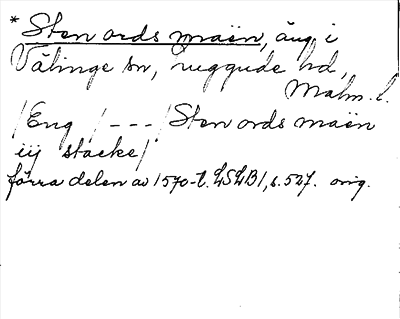 * Sten ords maën, äng i
Välinge sn, Luggude hd,
Malm. l.
/Eng /---/ Sten ords maën
iij stacke/
förra delen av 1570-t. LSLB1, s. 527. orig.